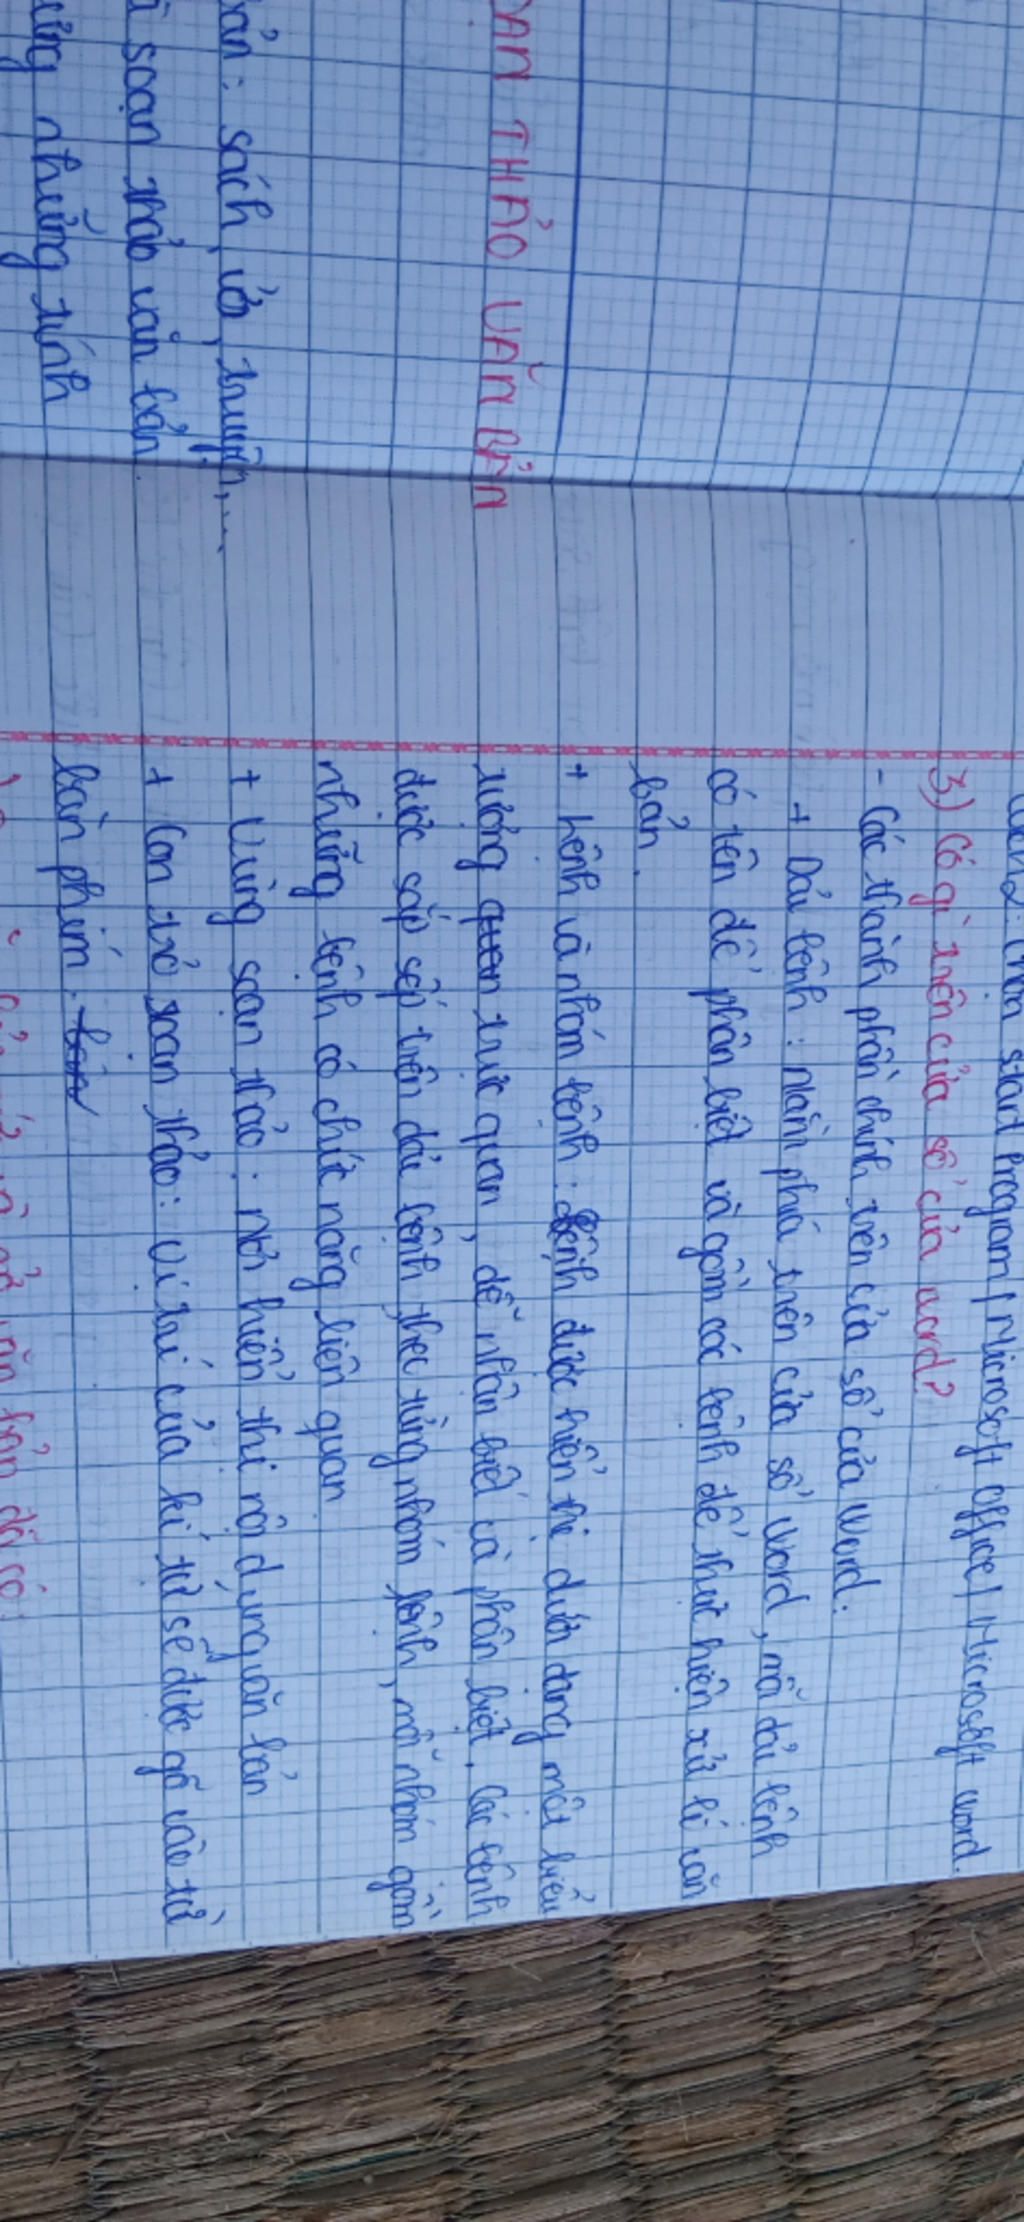 OẠN THẢO VĂN BẢN
bản: sách, vở, truyện,...
soạn thảo văn bản.
những tính
start Program / Microsoft office / Microsoft word.
3) Có gì trên cửa sổ của word?
- Các thành phần chính trên cửa sổ của Word:
+ Dải lệnh: Nằm phía trên cửa sổ Word, mỗi dải lệnh
có tên để phân biệt và gồm các lệnh để thực hiện xử lí văn
bản.
+ Lệnh và nhóm lệnh: lệnh được hiển thị dưới dạng một biểu
tượng trực quan, dễ nhận biết và phân biệt. Các lệnh
được sắp sếp trên dải lệnh theo từng nhóm lệnh, mỗi nhóm gồm
những lệnh có chức năng liên quan.
+ Vùng soạn thảo: nơi hiển thị nội dung văn bản
+ Con trỏ soạn thảo: vị trí của kí tự sẽ được gõ vào từ
bàn phím.
văn bản đã có: